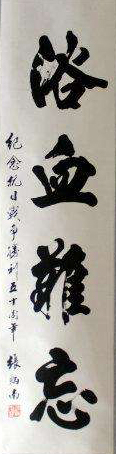 浴血難忘
纪念抗日战争胜利五十周年